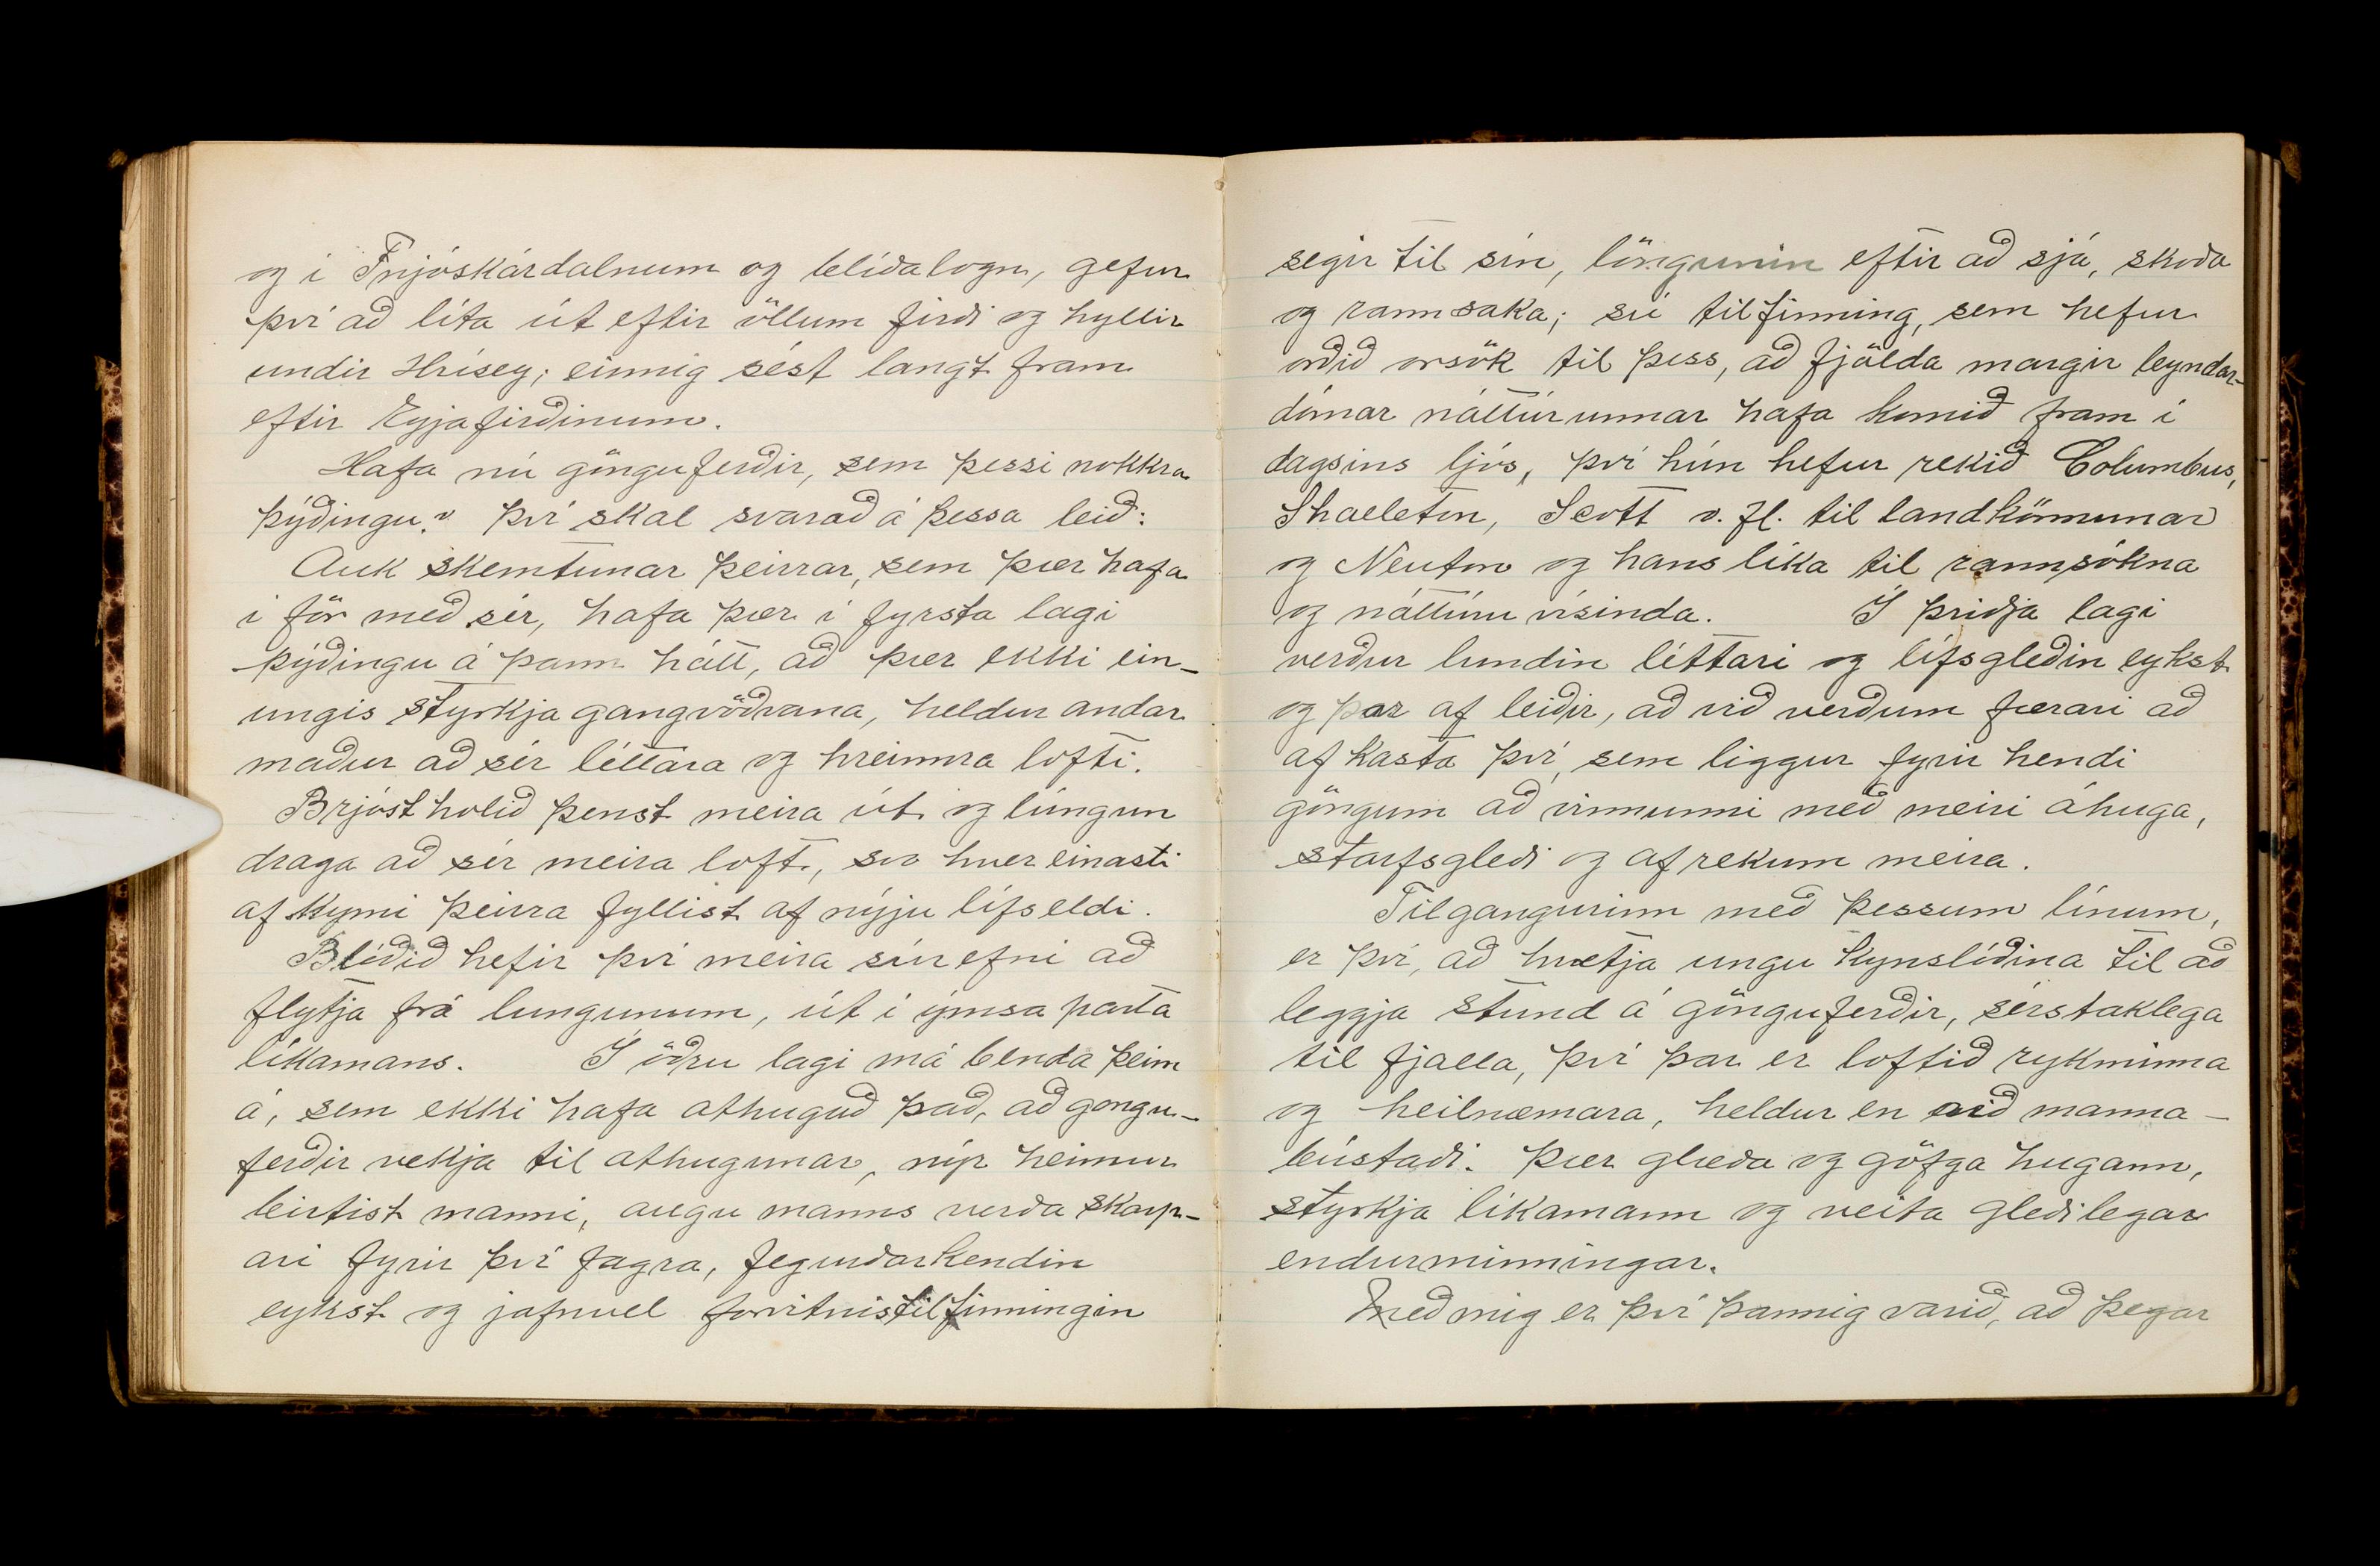 og í Fnjóskárdalnum og blíðalogn, gefur
því að líta út eftir öllum firði og hyllir
undir Hrísey; einnig sést langt fram
eftir Eyjafirðinum.
Hafa nú gönguferðir, sem þessi nokkra
þýðingu? Því skal svarað á þessa leið:
Auk skemtunar þeirrar, sem þær hafa
í för með sér, hafa þær í fyrsta lagi
þýðingu á þann hátt, að þær ekki ein-
ungis styrkja gangvöðvana, heldur andar
maður að sér léttara og hreinna lofti.
Brjóstholið þenst meira út og lúngun
draga að sér meira loft, svo hver einasti
afkymi þeirra fyllist af nýju lífseldi.
Blóðið hefir því meira súrefni að
flytja frá lungunum, út í ýmsa parta
líkamans. Í öðru lagi má benda þeim
á, sem ekki hafa athugað það, að gongu-
ferðir vekja til athugunar, nýr heimur
birtist manni, augu manns verða skarp-
ari fyrir því fagra, fegurðarkendin
eykst og jafnvel forvitnistilfinningin
segir til sín, löngunin eftir að sjá, skoða
og rannsaka; sú tilfinning, sem hefur
orðið orsök til þess, að fjölda margir leyndar-
dómar náttúrunnar hafa komið fram í
dagsins ljós, því hún hefur rekið Columbus,
Shacleton, Scott o. fl. til landkönnunar
og Neuton og hans líka til rannsókna
og náttúru vísinda. Í þriðja lagi
verður lundin léttari og lífsgleðin eykst
og þar af leiðir, að við verðum færari að
afkasta því, sem liggur fyrir hendi
göngum að vinnunni með meiri áhuga,
starfsgleði og afrekum meira.
Tilgangurinn með þessum línum,
er því, að hvetja ungu kynslóðina til að
leggja stund á gönguferðir, sérstaklega
til fjalla, því þar er loftið rykminna
og heilnæmara, heldur en við manna-
bústaði. Þær glæða og göfga hugann,
styrkja líkamann og veita gleðilegar
endurminningar.
Með mig er því þannig varið, að þegar